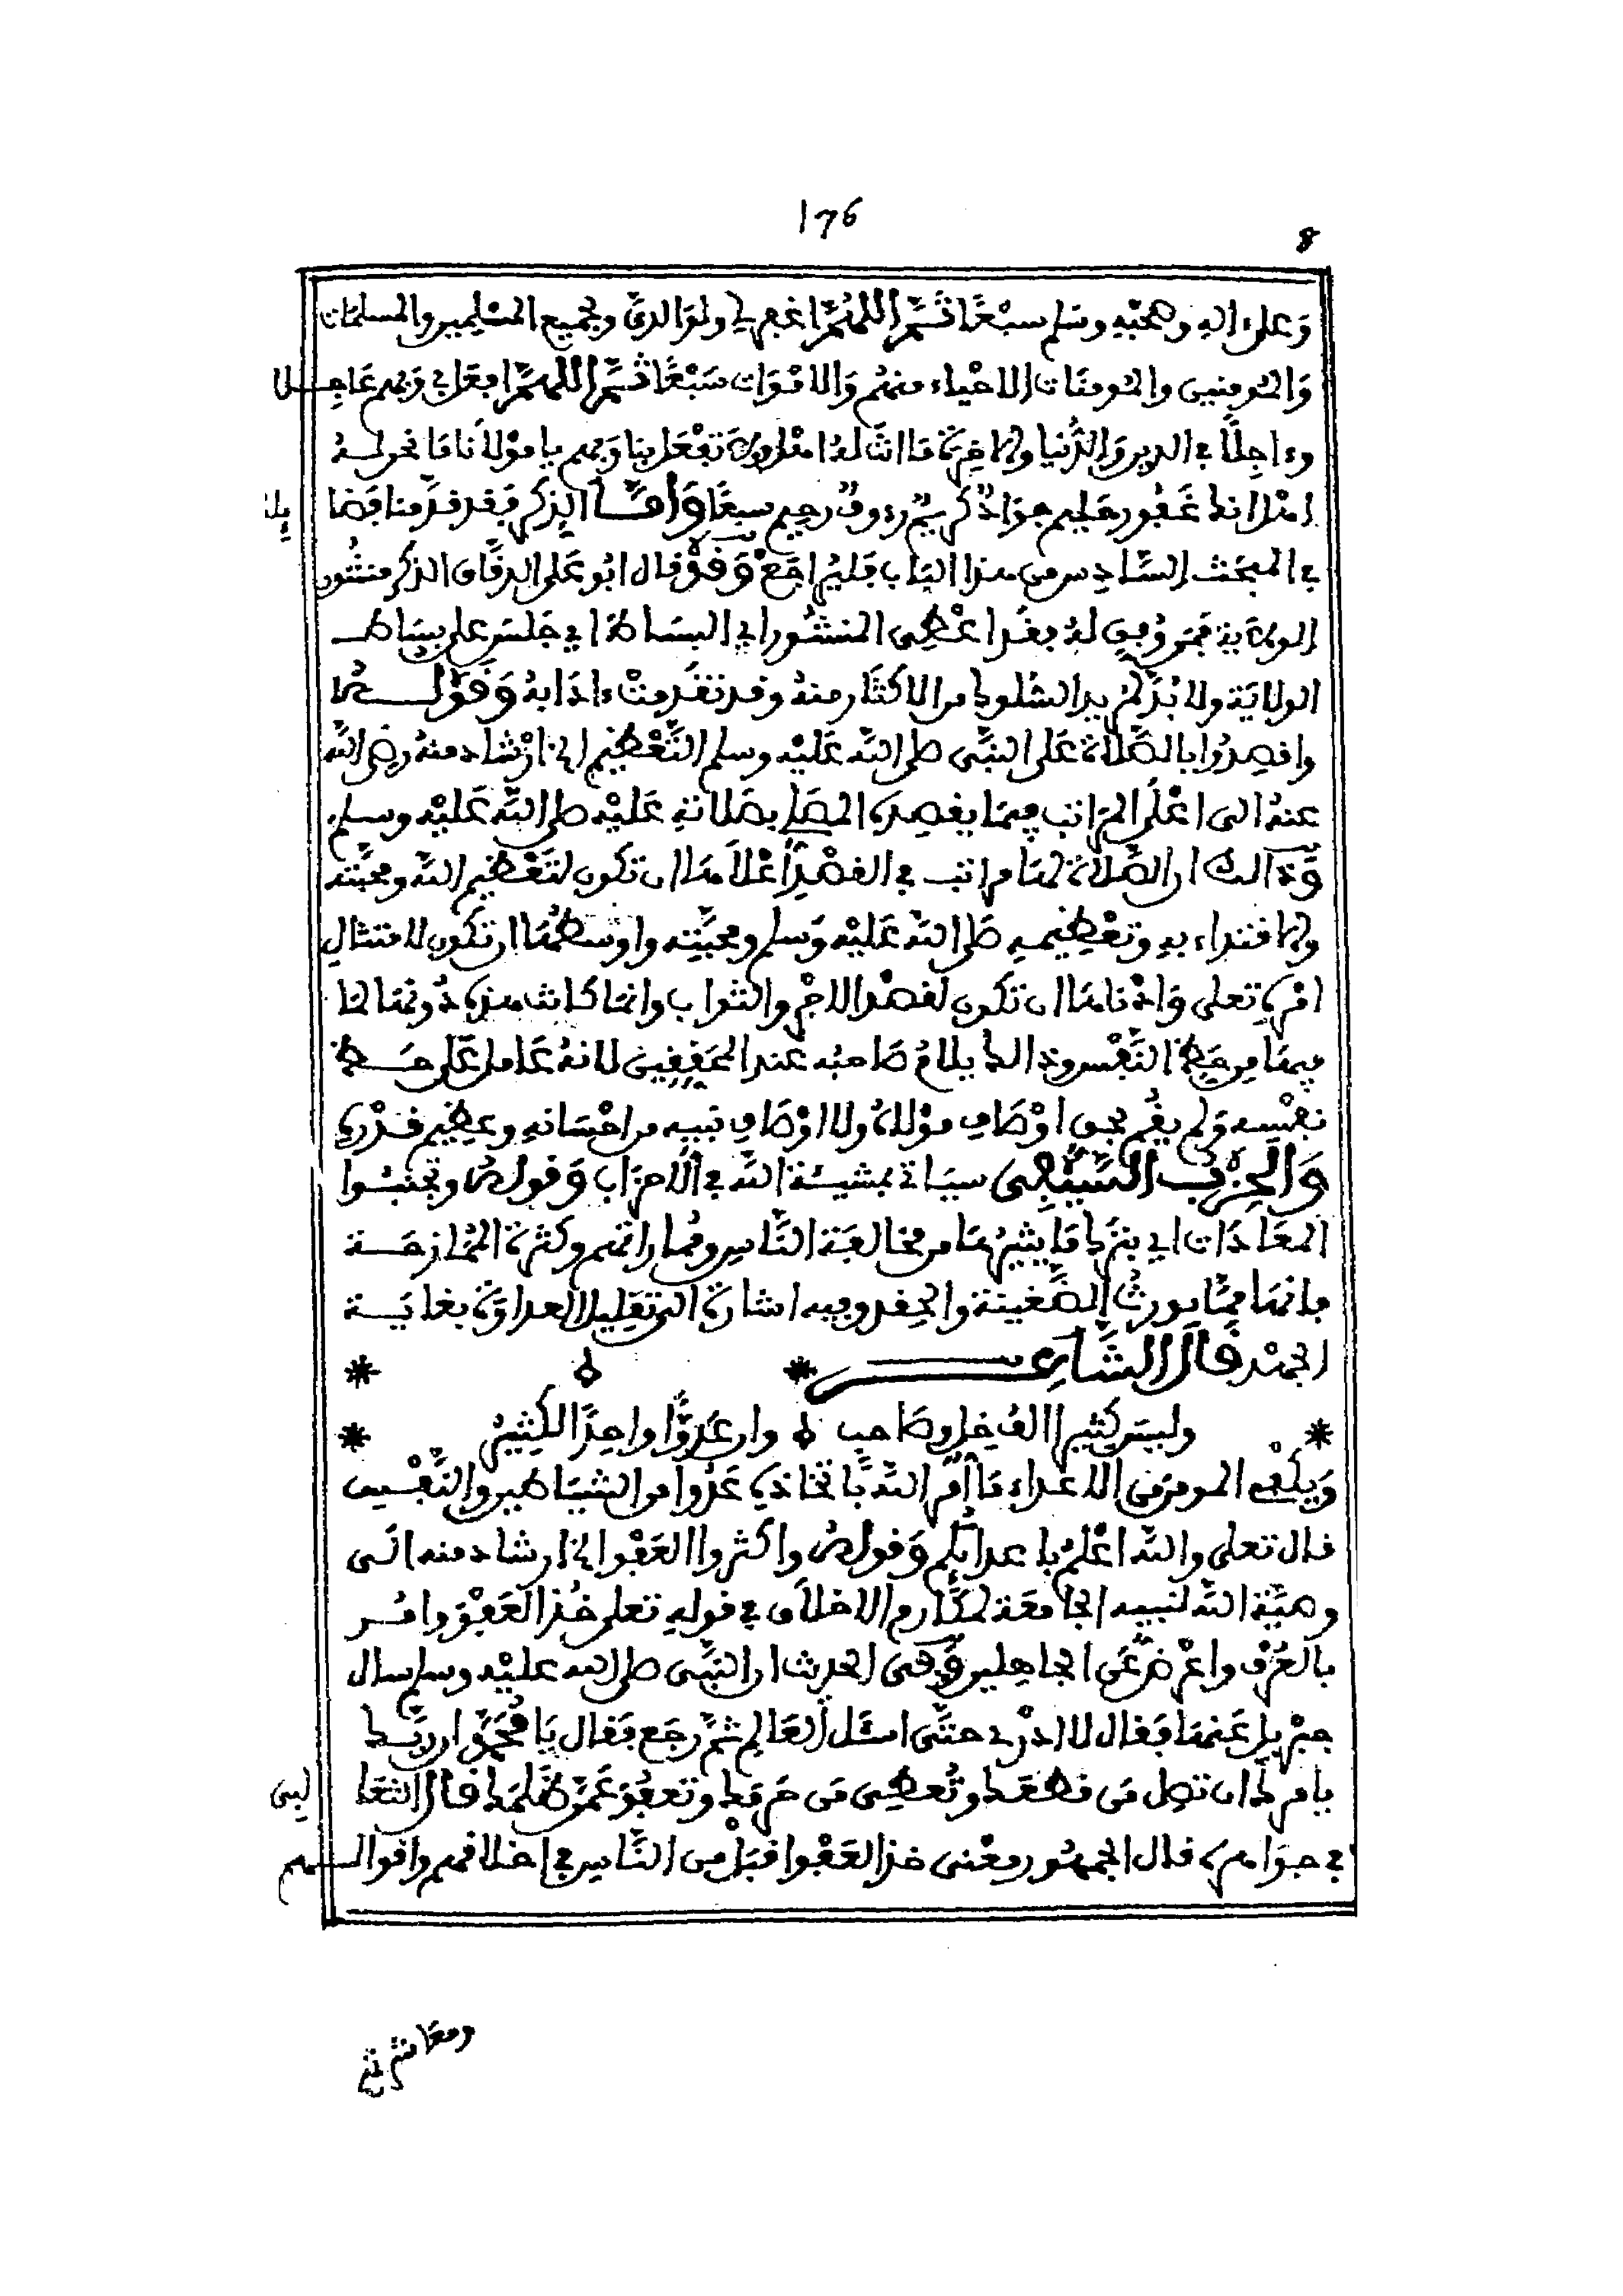 176
8
وَعلىءاله وصَحْبه وسَلم سبْعًا ثمَّ اللهُمَّ اغفر لى ولوَالدىَّ ولجميع المسْلمين والمسلمات
وَالمومنين والمومنَات الاحْياء منهُم وَالامْوَات سَبْعًا ثمَّ اللهمَّ افعَل بى وَبهم عَاجِلا
وءاجِلًا فى الدين وَالدُّنيا والاخِرَة مَا انتَ لهُ اهْل ولَا تَفْعَل بنا وَبهم يا موْلَانا مَا نحن لهُ
اهْل انك غَفور حَليم جوَادٌ كريمٌ رءوفٌ رحيم سبعًا وَأمَّا الذِكر فَقد قدَّمنا فضله
فى المبحَث السَّادس من هذا البَاب فليُراجَعْ وَقدْ قال ابُو عَلى الدقَّاق الذكر منشُور
الولَاية فمَن وُفق لهُ فقَد اعْطِى المنشُور اى البسَاط اى جَلسَ على بسَاط
الولايَة ولا بُدَّ لمريد السُّلوك من الاكثَار منهُ وقد تقَدمتْ ءادَابهُ وَقوْلـــهُ
واقصِدُوا بالصَّلَاة عَلى النبَّى صلى اللَّه عَليْه وسلم التَّعْظيم الخ ارْشَاد منهُ رضى اللَّه
عنهُ الى اعْلَى المرَاتب فيمَا يقصدهُ المصَلى بصَلاته عَليْه صلى اللَّه عَليْه وسلم
وَذالك ان الصَّلَاة لهَا مراتب فى القصْد أعْلَاهَا ان تكون لتَعْظيم اللَّه ومحبَّته
والاقتداء به وتَعْظيمه صَلى اللَّه عَليْه وَسلم ومحبَّته واوسَطُهَا ان تكُون لامتثال
امْره تعلى وَادْناهَا ان تكون لقصْد الاجْر والثوَاب وانمَا كانت هذه دُونهَا لمَا
فيهَا من حَظّ النَّفْس وذالك يلَامُ صَاحبُه عندَ المحَققِين لانهُ عَامل عَلى حَــظّ
نفْسِه وَلم يقُم بحق اوْصَاف موْلَاهُ ولا اوْصَاف نبيه من احْسَانه وعظيم قـدْره
وَالحِزْب السَّيْفِى سيَاتى بمشيئة اللَّه فى الأحزَاب وَقولهُ وتجنبُـوا
المعَادَات اى بترْك مَا يثيرُهَا من مخالفَة النَّاس ومُمارَاتهم وكثرة المُمَازحَــة
فانهَا ممَّا يورثُ الضَّغينة والحقد وفيه اشارة الى تقليل العداوَة بغايَــة
الجهْد قَالَ الشَّاعِـــــر * ه *
* وليسَ كثيرًا الفُ خِل وصَاحب ه وان عَدُوًّا واحِدًا لكثيرُ *
وَيكْفى المومن من الاعداء مَا أمَرَ اللَّه باتخاذه عَدُوا من الشيَاطين والنَّفْـس
قال تعلى واللَّه اعْلمُ باعدائكُم وَقولهُ واكثروا العَفْو الخ ارشَاد منه الَـى
وصيَّة اللَّه لنبيه الجَامعَة لمكَارم الاخلَاق فى قوله تعلى خُذ العَفْوَ وامُـر
بالعُرْف واعْرضْ عَن الجَاهلين وَفى الحديث ان النبَّى صلى اللَّه عليْه وسلم سال
جبْريل عَنهَا فقال لا ادْرى حتَّى اسئَل العَالم ثمَّ رجَع فقال يَا مُحَمَّد ان ربَّـك
يامرك ان تصل مَن قطعَك وتُعطى مَن حَرمَك وتعفُوَ عَمَّن ظَلمَك قالَ الثعَا
لبى
فى جوَاهره قال الجمْهُور معْنى خذ العَفْو اقبَلْ من النَّاس فى اخلاقهم واقوالـهم
ومعَاشرتهم